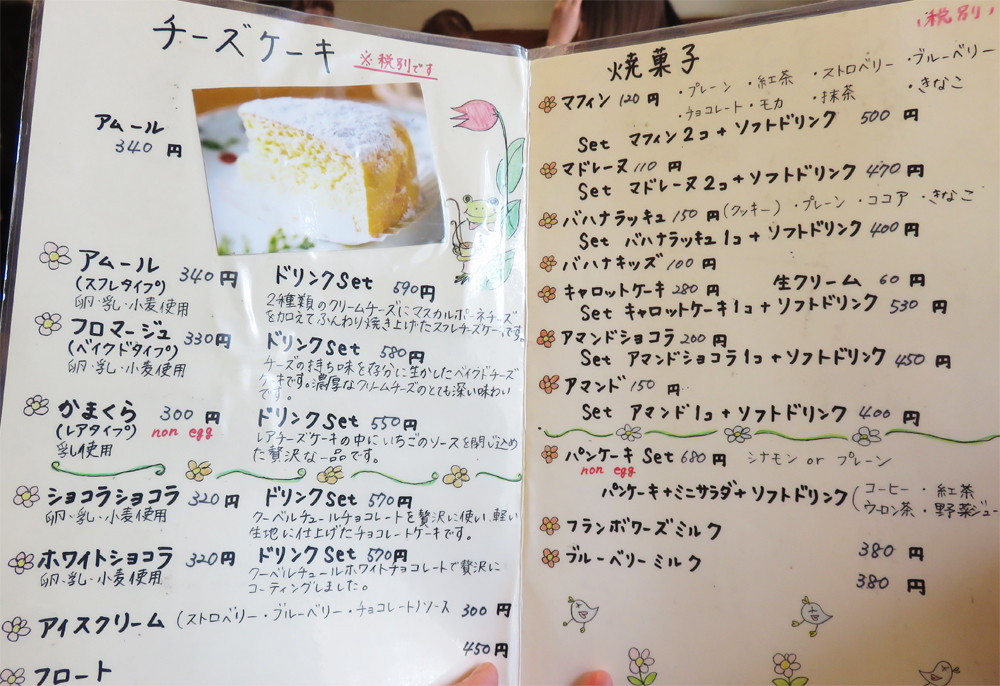 チーズケーキ
※税別です
アムール
340 円
アムール 340円 ドリンクSet 690円
(スフレタイプ)
卵・乳・小麦使用
2種類のクリームチーズにマスカルポーネチーズ
を加えてふんわり焼き上げたスフレチーズケーキです。
フロマージュ 330円 ドリンクSet 580円
(ベイクドタイプ)
卵・乳・小麦使用
チーズの持ち味を存分に生かしたベイクドチーズ
ケーキです。濃厚なクリームチーズのとても深い味わい
です。
かまくら 300円 ドリンクSet 550円
(レアタイプ) non egg
乳使用
レアチーズケーキの中にいちごのソースを閉じ込め
た贅沢な一品です。
ショコラショコラ 320円 ドリンクSet 570円
卵・乳・小麦使用
クーベルチュールチョコレートを贅沢に使い、軽い
生地に仕上げたチョコレートケーキです。
ホワイトショコラ 320円 ドリンクSet 570円
卵・乳・小麦使用
クーベルチュールホワイトチョコレートで贅沢に
コーティングしました。
アイスクリーム (ストロベリー・ブルーベリー・チョコレート)ソース 300円
フロート 450円
税別
焼菓子
マフィン 120円 ・プレーン ・紅茶 ・ストロベリー ・ブルーベリー
・チョコレート・モカ ・抹茶 ・きなこ
Set マフィン2コ+ソフトドリンク 500円
マドレーヌ 110 円
Set マドレーヌ2コ+ソフトドリンク 470円
バハナラッキュ 150円 (クッキー) ・プレーン ・ココア ・きなこ
Set バハナラッキュ1コ+ソフトドリンク 400円
バハナキッズ 100円
キャロットケーキ 280円 生クリーム 60円
Set キャロットケーキ1コ+ソフトドリンク 530円
アマンドショコラ 200円
Set アマンドショコラ1コ+ソフトドリンク 450円
アマンド 150円
Set アマンド1コ+ソフトドリンク 400円
パンケーキ Set 680円 シナモン or プレーン
non egg
パンケーキ+ミニサラダ+ソフトドリンク(コーヒー・紅茶
ウーロン茶・野菜ジュー
フランボワーズミルク 380円
ブルーベリーミルク 380円